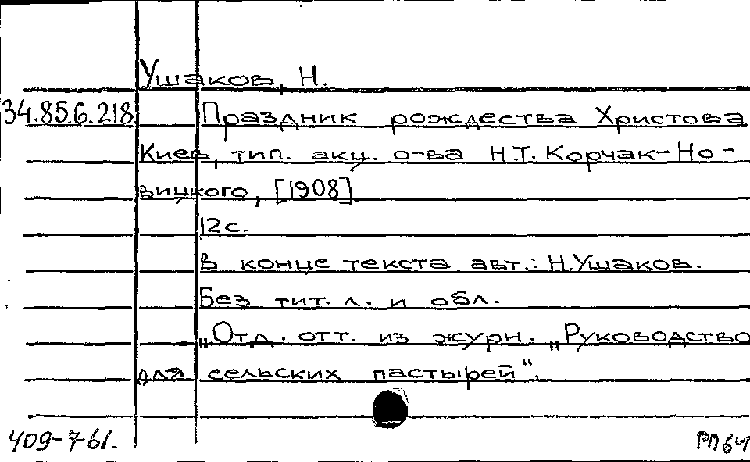 Ушаков, Н.
34.85.6.218 Праздник рождества Христова
Киев, тип. акц. о-ва Н.Т. Корчак-Но-
вицкого, [1908]
12с.
В конце текста авт.: Н.Ушаков.
Без тит. л. и обл.
„Отд. отт. из журн. „Руководство
для сельских пастырей".
409-761. РП64